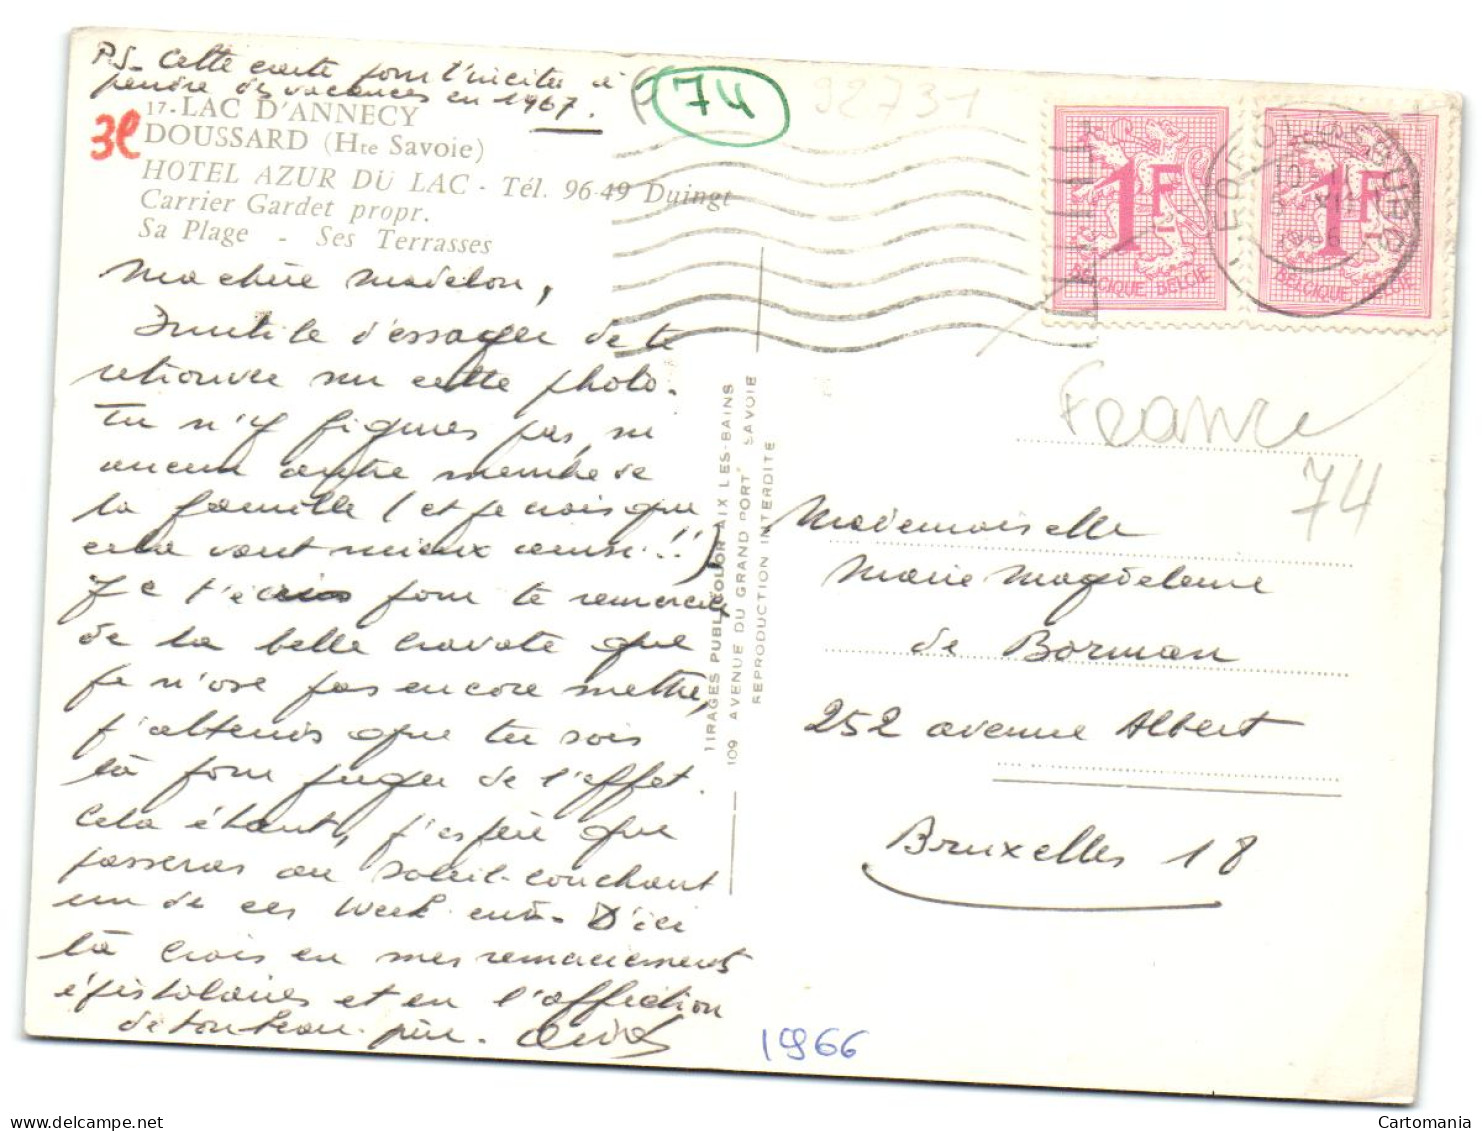 PS. Cette carte pour t'inciter à
prendre des vacances en 1967.
74
92731
3€
17-LAC D'ANNECY
DOUSSARD (Hte Savoie)
HOTEL AZUR DU LAC - Tél. 96-49 Duingt
Carrier Gardet propr.
Sa Plage - Ses Terrasses
1F
BELGIQUE BELGIE
1F
BELGIQUE BELGIE
Ma chère Madelon,
Inutile d'essayer de te
retrouver sur cette photo.
Tu n'y figures pas, ni
aucun autre membre de
la famille (et je crois que
cela vaut mieux ainsi!!)
Je t'écris pour te remercier
de la belle cravate que
je n'ose pas encore mettre,
j'attends que tu sois
là pour juger de l'effet.
Cela étant, j'espère que
passeras au Soleil-Couchant
un de ces week-end. D'ici
là crois en mes remerciements
épistolaires et en l'affection
de ton beau-père.
TIRAGES PUBLICOLOR AIX LES-BAINS
109 AVENUE DU GRAND PORT SAVOIE
REPRODUCTION INTERDITE
France
74
Mademoiselle
Marie Magdeleine
de Borman
252 avenue Albert
Bruxelles 18
1966
Cartomania